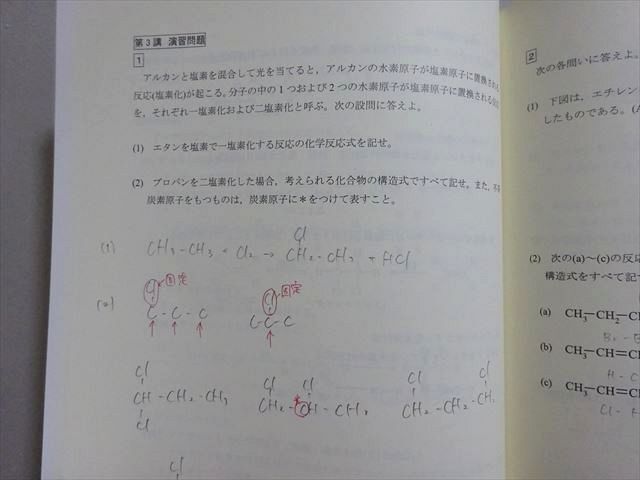 第3講 演習問題
1
アルカンと塩素を混合して光を当てると，アルカンの水素原子が塩素原子に置換される
反応(塩素化)が起こる。分子の中の1つおよび2つの水素原子が塩素原子に置換される
を，それぞれ一塩素化および二塩素化と呼ぶ。次の設問に答えよ。
(1) エタンを塩素で一塩素化する反応の化学反応式を記せ。
(2) プロパンを二塩素化した場合，考えられる化合物の構造式ですべて記せ。また，不
炭素原子をもつものは，炭素原子に＊をつけて表すこと。
Cl
(1) CH3-CH3 + Cl2 → CH2-CH3 + HCl
Cl 固定 Cl 固定
(2) C - C - C C-C-C
Cl Cl Cl Cl Cl
CH-CH2-CH3 CH2-*CH-CH3 CH2-CH2-CH2
Cl
Cl
2
次の各問いに答えよ。
(1) 下図は，エチレン
したものである。(A
(2) 次の(a)～(c)の反応
構造式をすべて記せ
(a) CH3-CH2-C
Br - B
(b) CH3-CH=C
H - C
(c) CH3-CH=C
Cl - H